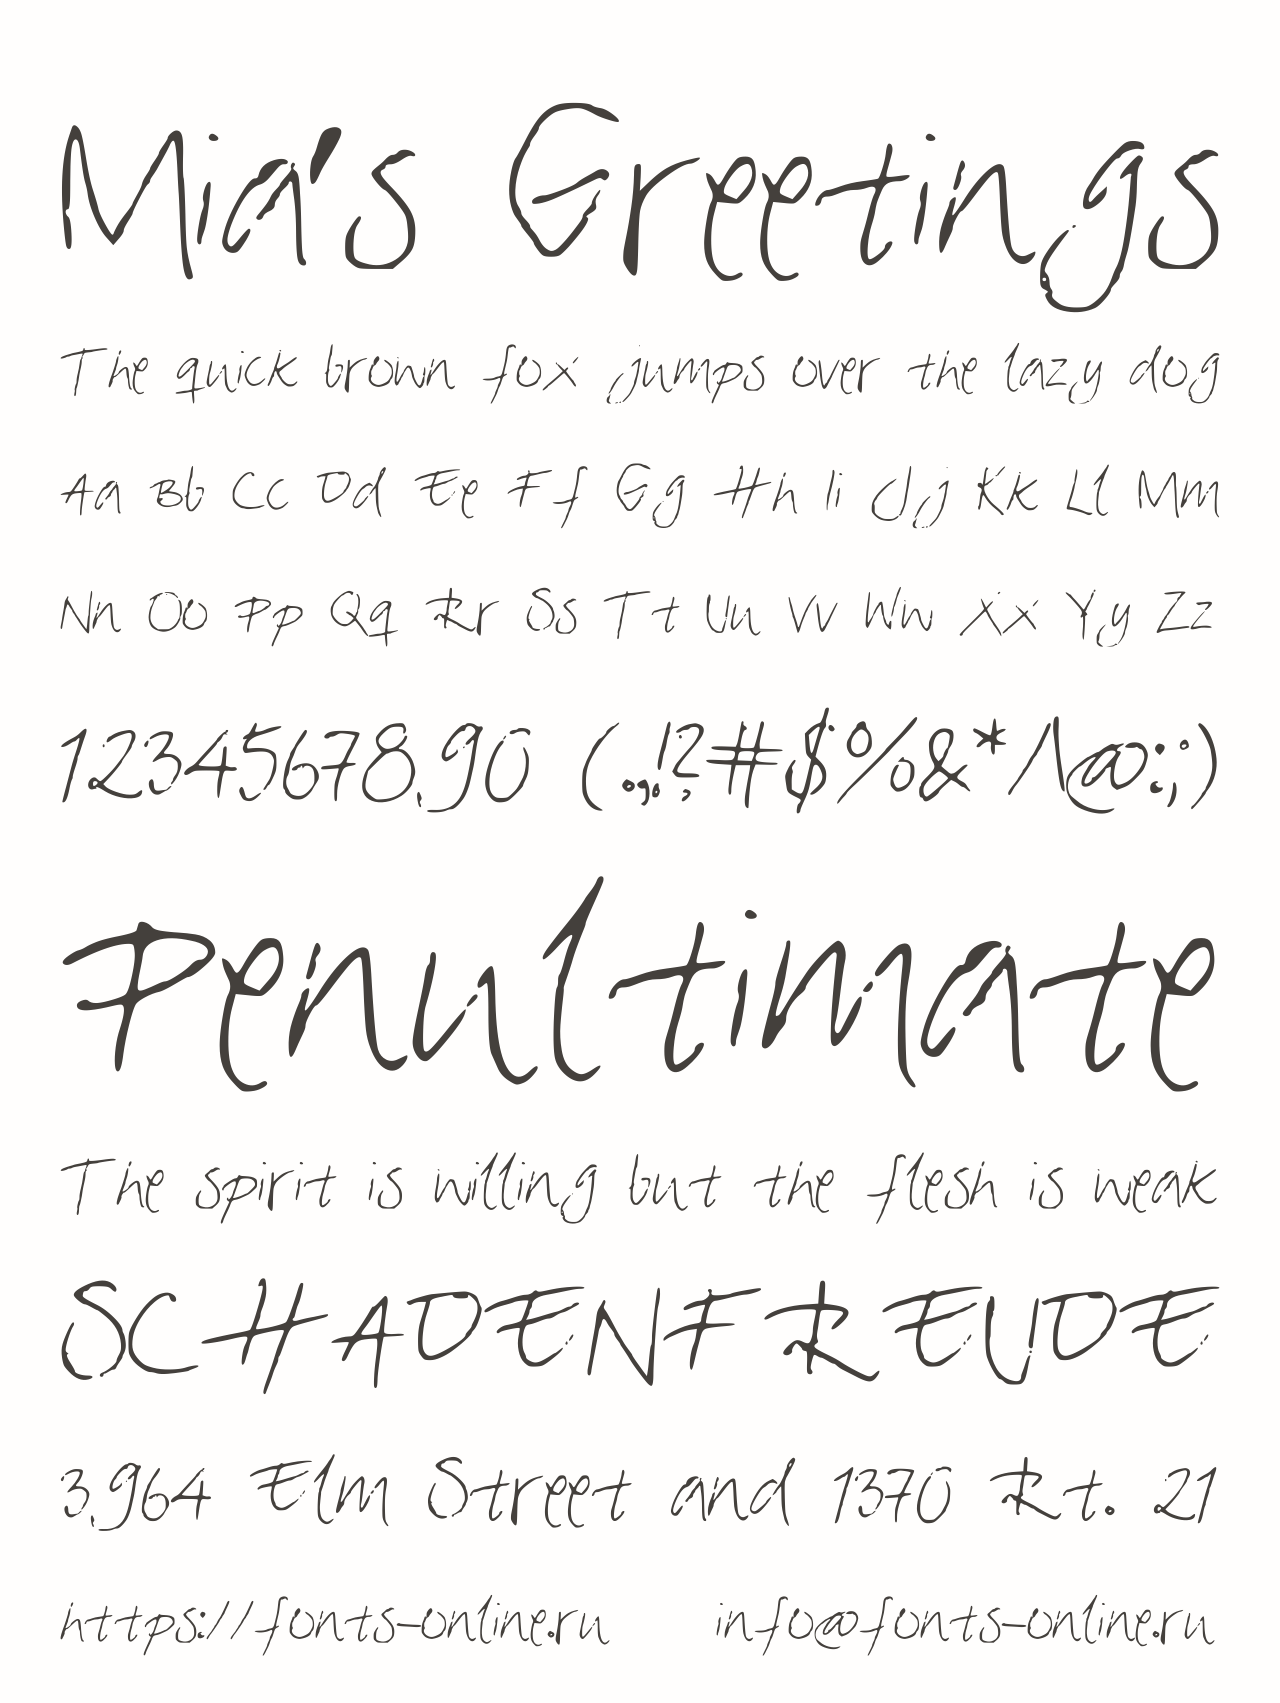 Mia's Greetings
The quick brown fox jumps over the lazy dog
Aa Bb Cc Dd Ee Ff Gg Hh Ii Jj Kk Ll Mm
Nn Oo Pp Qq Rr Ss Tt Uu Vv Ww Xx Yy Zz
1234567890 (.,!?#$%&*/\@:;)
Penultimate
The spirit is willing but the flesh is weak
SCHADENFREUDE
3964 Elm Street and 1370 Rt. 21
https://fonts-online.ru info@fonts-online.ru